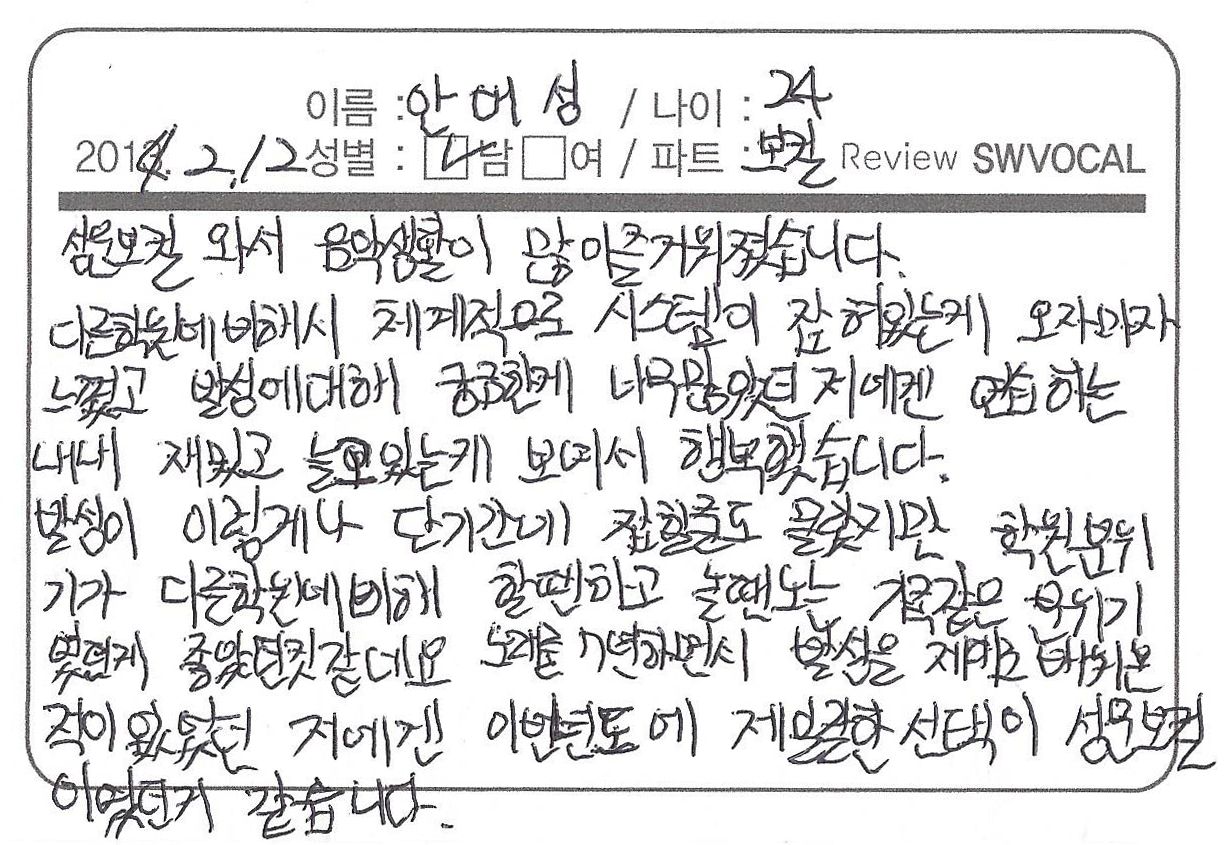 이름 : 안대성 / 나이 : 24
2014. 2. 12 성별 : 남 여 / 파트 : 보컬 Review SWVOCAL
성운보컬 와서 음악생활이 많이즐거워졌습니다.
다른학원에비해서 체계적으로 시스템이 잡혀있는게 오자마자
느꼈고 발성에대해 궁금한게 너무많았던 저에겐 연습하는
내내 재밌고 늘고있는게 보여서 행복했습니다.
발성이 이렇게나 단기간에 잡힐줄도 몰랐지만 학원분위
기가 다른학원에비해 할땐하고 놀땐노는 가족같은 분위기
였던게 좋았던것같네요 노래를 7년하면서 발성을 제대로 배워본
적이 없었던 저에겐 이번년도에 제일잘한 선택이 성운보컬
이였던거 같습니다.